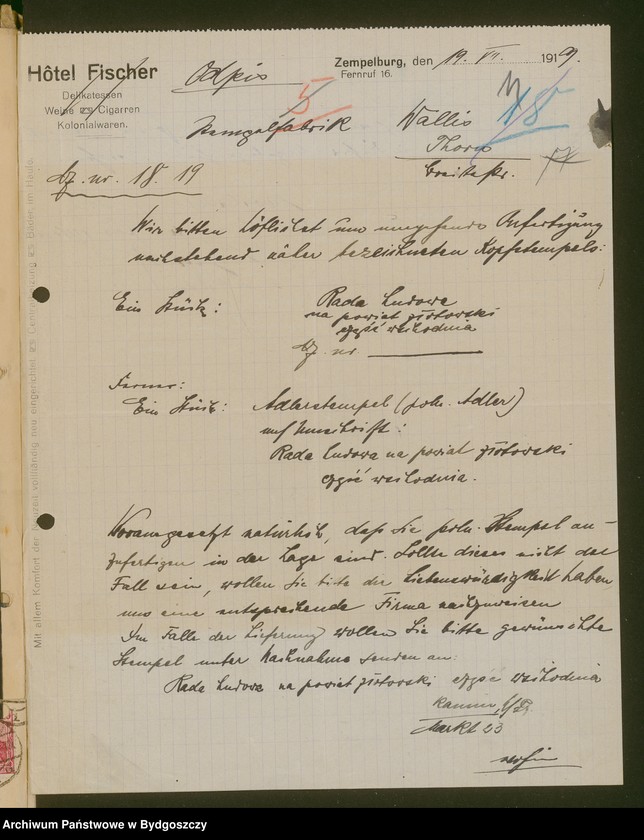 Hôtel Fischer
Delikatessen
Weine Cigarren
Kolonialwaren.
Odpis
Zempelburg, den 19. VI. 1919.
Fernruf 16.
5
18
Stempelfabrik Wallis
Thorn
Breitestr.
17
Dz. nr. 18. 19
Wir bitten höflichst um umgehende Anfertigung
nachstehend näher bezeichneten Kopfstempels:
Ein Stück: Rada Ludowa
na powiat złotowski
część wschodnia
Dz. nr.
Ferner:
Ein Stück: Adlerstempel (poln. Adler)
mit Umschrift:
Rada Ludowa na powiat złotowski
część wschodnia.
Vorausgesetzt natürlich, daß Sie poln. Stempel an-
zufertigen in der Lage sind. Sollte dieses nicht der
Fall sein, wollen Sie bitte die Liebenswürdigkeit haben
uns eine entsprechende Firma nachzuweisen
Im Falle der Lieferung wollen Sie bitte gewünschte
Stempel unter Nachnahme senden an:
Rada Ludowa na powiat złotowski część wschodnia
Kamin
Markt 23
Mit allem Komfort der Neuzeit vollständig neu eingerichtet Centralheizung Bäder im Hause.
Archiwum Państwowe w Bydgoszczy